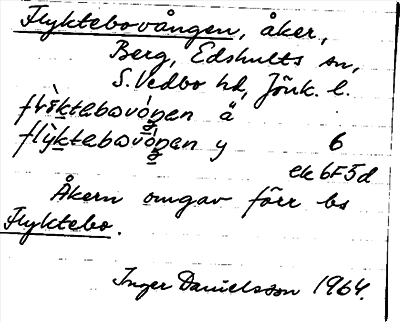 Flyktebovången, åker,
Berg, Edshults sn,
S. Vedbo hd, Jönk. l.
flỳktabavóŋen ä
flỳktabavóŋen y 6
ek 6F5d
Åkern omgav förr bs
Flyktebo.
Inger Danielsson 1964.